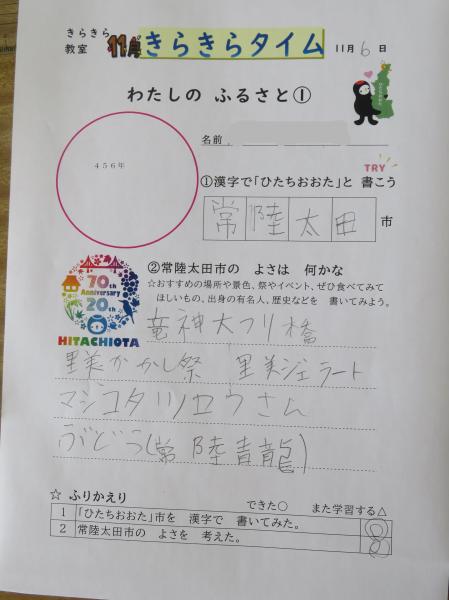 きらきら
教室
11月 きらきらタイム 11月6日
わたしの ふるさと①
名前
456年
TRY
①漢字で「ひたちおおた」と 書こう
常陸太田市
70th
Anniversary
20th
HITACHIOTA
②常陸太田市の よさは 何かな
☆おすすめの場所や景色、祭やイベント、ぜひ食べてみて
ほしいもの、出身の有名人、歴史などを 書いてみよう。
竜神大フリ橋
里美かかし祭 里美ジェラート
マジコタツノロウさん
ぶどう(常陸青龍)
☆ ふりかえり できた○ また学習する△
1 「ひたちおおた」市を 漢字で 書いてみた。
2 常陸太田市の よさを 考えた。